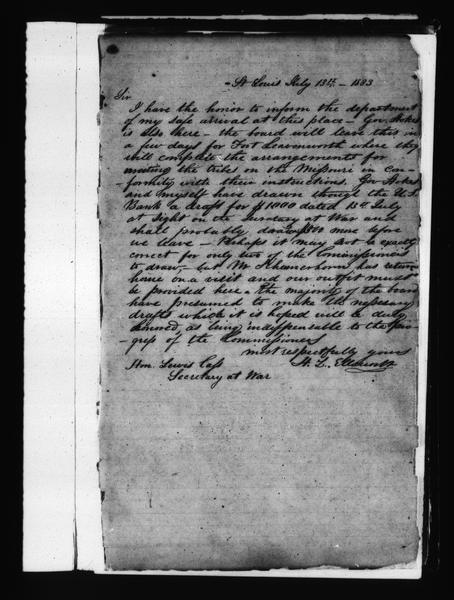 St Louis July 13th - 1833
Sir
I have the honor to inform the department
of my safe arrival at this place - Gov. Stokes
is also here - the board will leave this in
a few days for Fort Leavenworth where they
will complete the arrangements for
meeting the tribes on the Missouri in con-
formity with their instructions. Gov Stokes
and myself have drawn through the U.S.
Bank a draft for $1000 dated 13th July
at sight on the Secretary at War and
shall probably draw more before
we leave - Perhaps it may not be exactly
correct for only two of the Commissioners
to draw, - but Mr Schermerhorn has return
home on a visit and our outfit must
be provided here & the majority of the board
have presumed to make the necessary
drafts which it is hoped will be duly
honored, as being indispensable to the pro-
gress of the Commissioners
most respectfully yours
Hon. Lewis Cass H. L. Ellsworth
Secretary at War